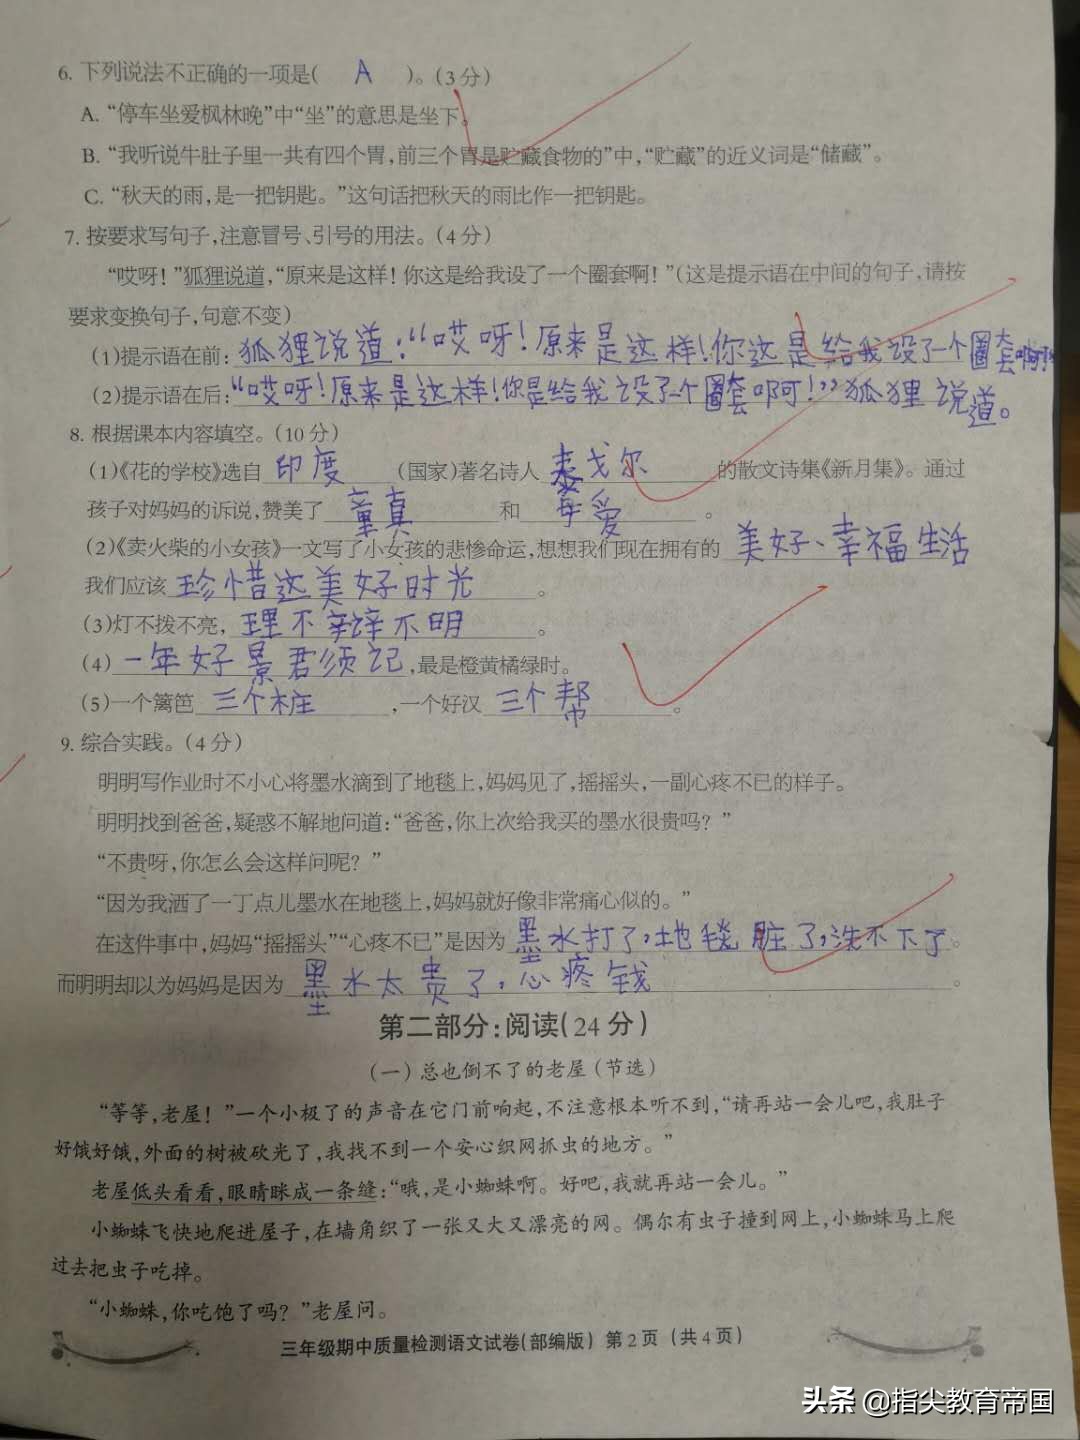 6. 下列说法不正确的一项是( A )。(3分)
A. “停车坐爱枫林晚”中“坐”的意思是坐下。
B. “我听说牛肚子里一共有四个胃,前三个胃是贮藏食物的”中,“贮藏”的近义词是“储藏”。
C. “秋天的雨,是一把钥匙。”这句话把秋天的雨比作一把钥匙。
7. 按要求写句子,注意冒号、引号的用法。(4分)
“哎呀!”狐狸说道,“原来是这样!你这是给我设了一个圈套啊!”(这是提示语在中间的句子,请按
要求变换句子,句意不变)
(1)提示语在前:狐狸说道:“哎呀!原来是这样!你这是给我设了一个圈套啊!”
(2)提示语在后:“哎呀!原来是这样!你是给我设了一个圈套啊!”狐狸说道。
8. 根据课本内容填空。(10分)
(1)《花的学校》选自 印度 (国家)著名诗人 泰戈尔 的散文诗集《新月集》。通过
孩子对妈妈的诉说,赞美了 童真 和 母爱 。
(2)《卖火柴的小女孩》一文写了小女孩的悲惨命运,想想我们现在拥有的 美好、幸福生活
我们应该 珍惜这美好时光 。
(3)灯不拨不亮, 理不辩不明 。
(4) 一年好景君须记 ,最是橙黄橘绿时。
(5)一个篱笆 三个桩 ,一个好汉 三个帮 。
9. 综合实践。(4分)
明明写作业时不小心将墨水滴到了地毯上,妈妈见了,摇摇头,一副心疼不已的样子。
明明找到爸爸,疑惑不解地问道:“爸爸,你上次给我买的墨水很贵吗?”
“不贵呀,你怎么会这样问呢?”
“因为我洒了一丁点儿墨水在地毯上,妈妈就好像非常痛心似的。”
在这件事中,妈妈“摇摇头”“心疼不已”是因为 墨水打了,地毯脏了,洗不下了 。
而明明却以为妈妈是因为 墨水太贵了,心疼钱 。
第二部分:阅读(24分)
(一)总也倒不了的老屋(节选)
“等等,老屋!”一个小极了的声音在它门前响起,不注意根本听不到,“请再站一会儿吧,我肚子
好饿好饿,外面的树被砍光了,我找不到一个安心织网抓虫的地方。”
老屋低头看看,眼睛眯成一条缝:“哦,是小蜘蛛啊。好吧,我就再站一会儿。”
小蜘蛛飞快地爬进屋子,在墙角织了一张又大又漂亮的网。偶尔有虫子撞到网上,小蜘蛛马上爬
过去把虫子吃掉。
“小蜘蛛,你吃饱了吗?”老屋问。
三年级期中质量检测语文试卷(部编版) 第2页 (共4页)
头条 @指尖教育帝国